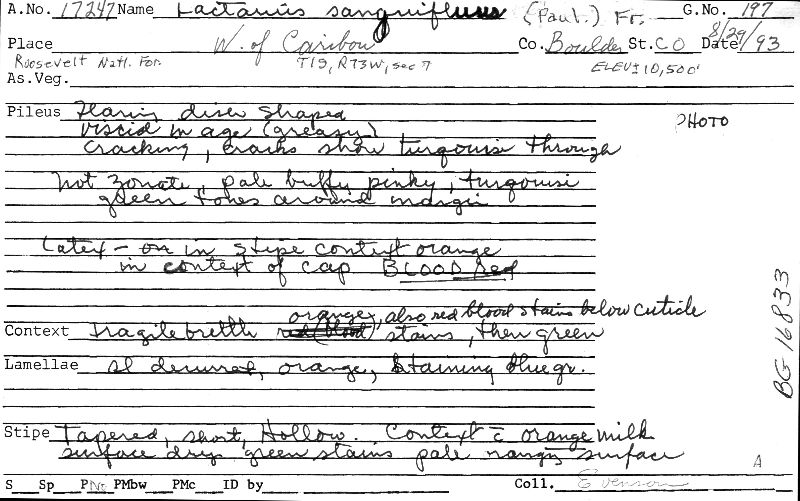 A.No. 17247 Name Lactarius sanguifluus (Paul.) Fr. G.No. 197
Place W. of Caribou Co. Boulder St. CO Date 8/29/93
Roosevelt Natl. For. T1S, R73W, sec 7 ELEV± 10,500'
As.Veg.
Pileus Flaring disc shaped PHOTO
viscid in age (greasy)
cracking, cracks show turquoise through
not zonate, pale buffy pinky, turquoise
green tones around margin
Latex - on in stipe context orange
in context of cap BLOOD Red
orange, also red blood stains below cuticle
Context fragile brettle red (blood) stains, then green
BG 16833
Lamellae sl decurrent, orange, staining bluegr.
Stipe Tapered, short, Hollow. Context c̄ orange milk
surface dry, green stains pale surface
A
S Sp PNo PMbw PMc ID by Coll. Evenson